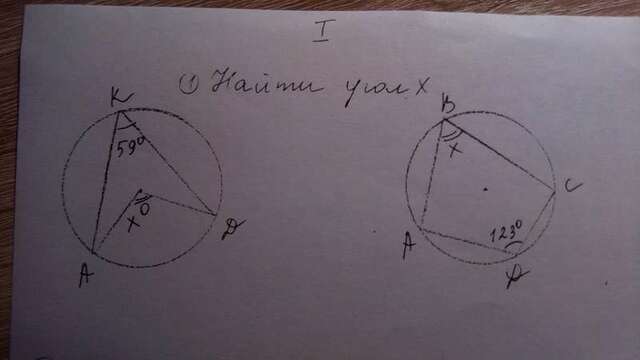 I
① Найти угол X
К
59°
O
X
Д
А
В
X
С
А
123°
Д